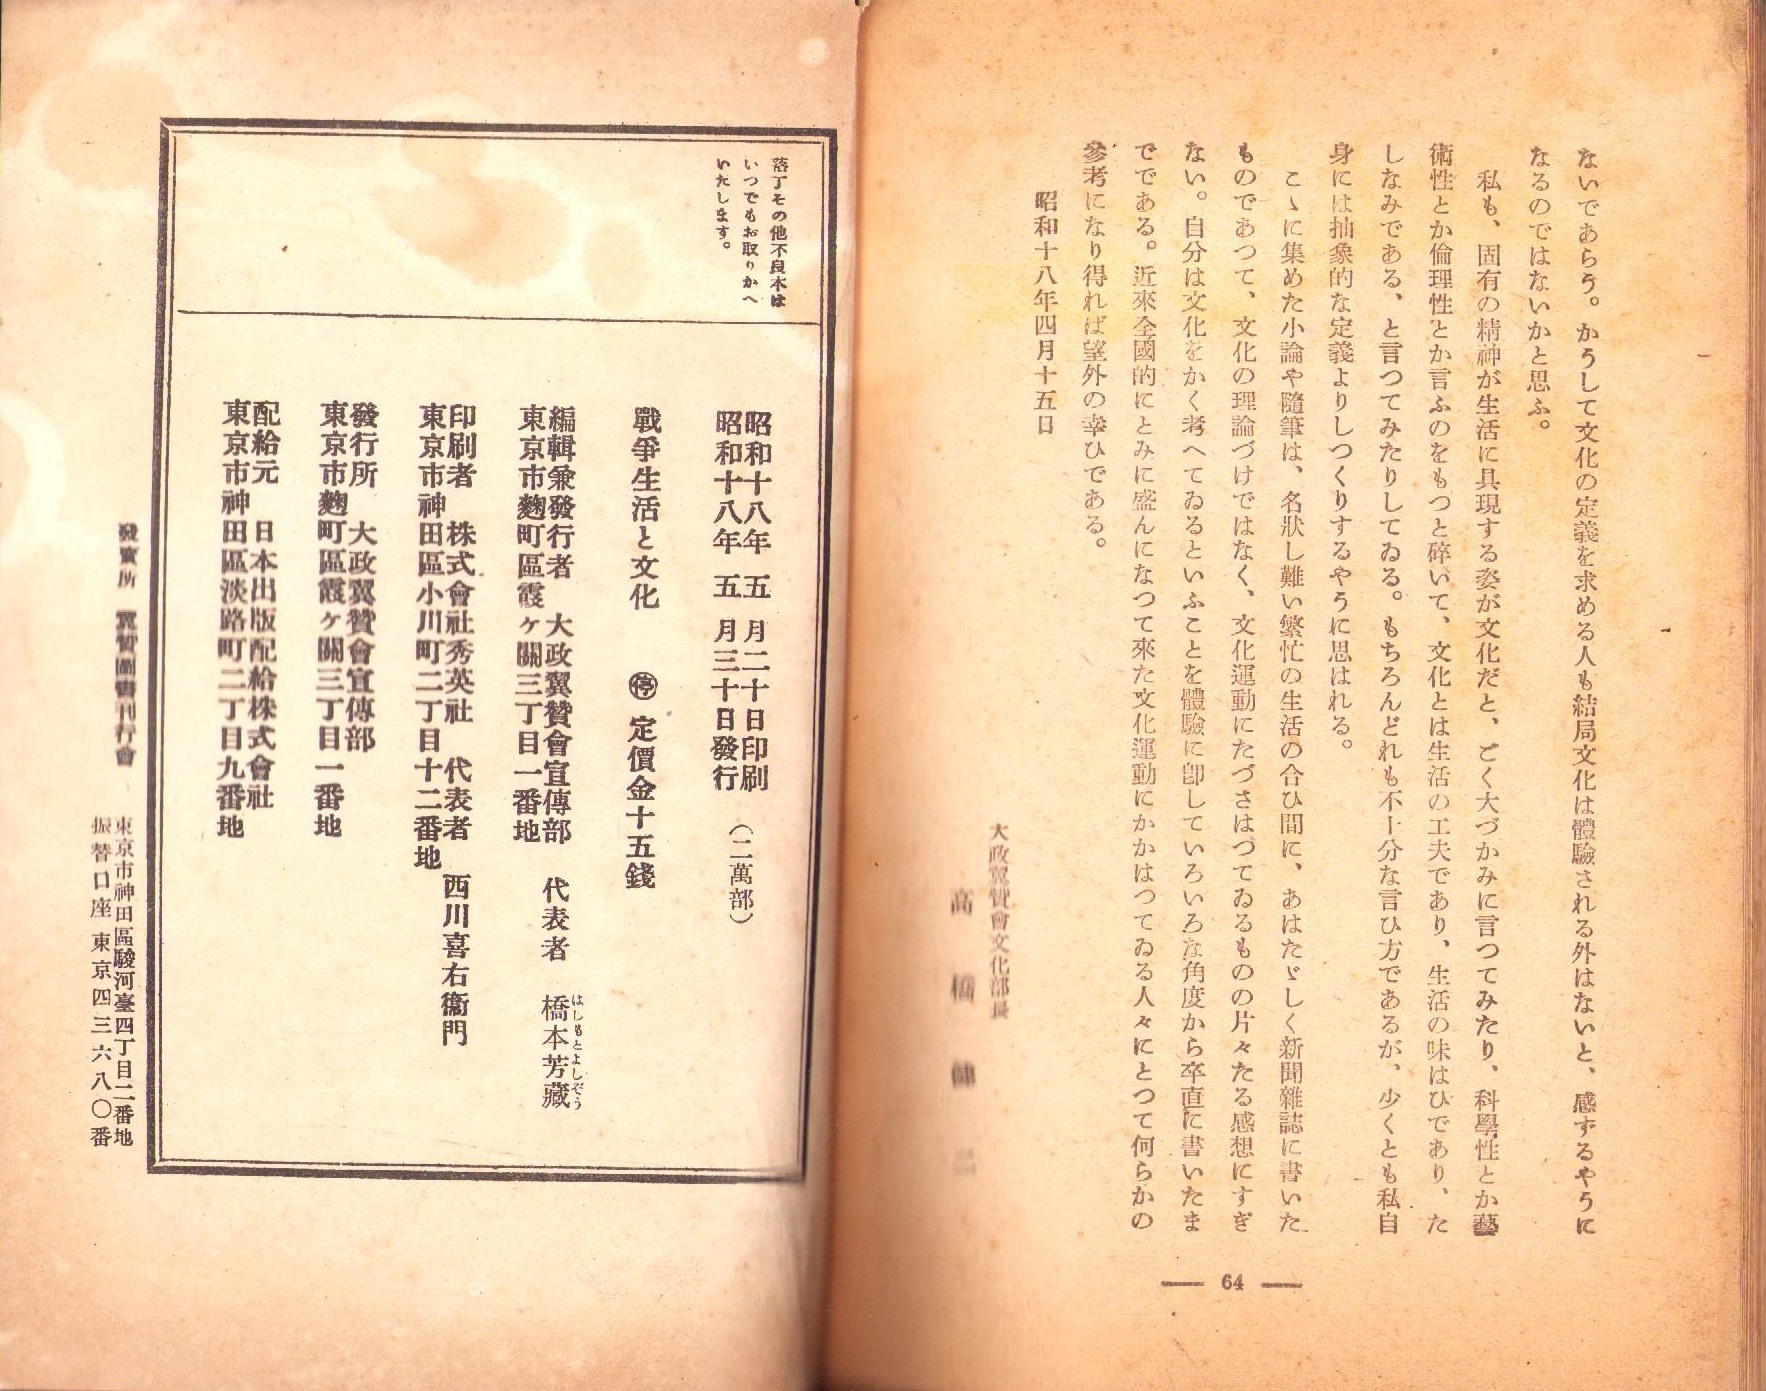 ないであらう。かうして文化の定義を求める人も結局文化は體驗される外はないと、感ずるやうに
なるのではないかと思ふ。
私も、固有の精神が生活に具現する姿が文化だと、ごく大づかみに言つてみたり、科學性とか藝
術性とか倫理性とか言ふのをもつと碎いて、文化とは生活の工夫であり、生活の味はひであり、た
しなみである、と言つてみたりしてゐる。もちろんどれも不十分な言ひ方であるが、少くとも私自
身には抽象的な定義よりしつくりするやうに思はれる。
こゝに集めた小論や隨筆は、名狀し難い繁忙の生活の合ひ間に、あはたゞしく新聞雜誌に書いた
ものであつて、文化の理論づけではなく、文化運動にたづさはつてゐるものの片々たる感想にすぎ
ない。自分は文化をかく考へてゐるといふことを體驗に卽していろいろな角度から卒直に書いたま
でである。近來全國的にとみに盛んになつて來た文化運動にかかはつてゐる人々にとつて何らかの
參考になり得れば望外の幸ひである。
昭和十八年四月十五日
大政翼贊會文化部長
高橋健二
64
落丁その他不良本は
いつでもお取りかへ
いたします。
昭和十八年 五 月二十日印刷
昭和十八年 五 月三十日發行
(二萬部)
戰爭生活と文化 ㊡ 定價金十五錢
編輯兼發行者 大政翼贊會宣傳部 代表者 橋本芳藏
はしもとよしぞう
東京市麴町區霞ヶ關三丁目一番地
印刷者 株式會社秀英社 代表者 西川喜右衞門
東京市神田區小川町二丁目十二番地
發行所 大政翼贊會宣傳部
東京市麴町區霞ヶ關三丁目一番地
配給元 日本出版配給株式會社
東京市神田區淡路町二丁目九番地
發賣所 翼贊圖書刊行會
東京市神田區駿河臺四丁目二番地
振替口座東京四三六八〇番